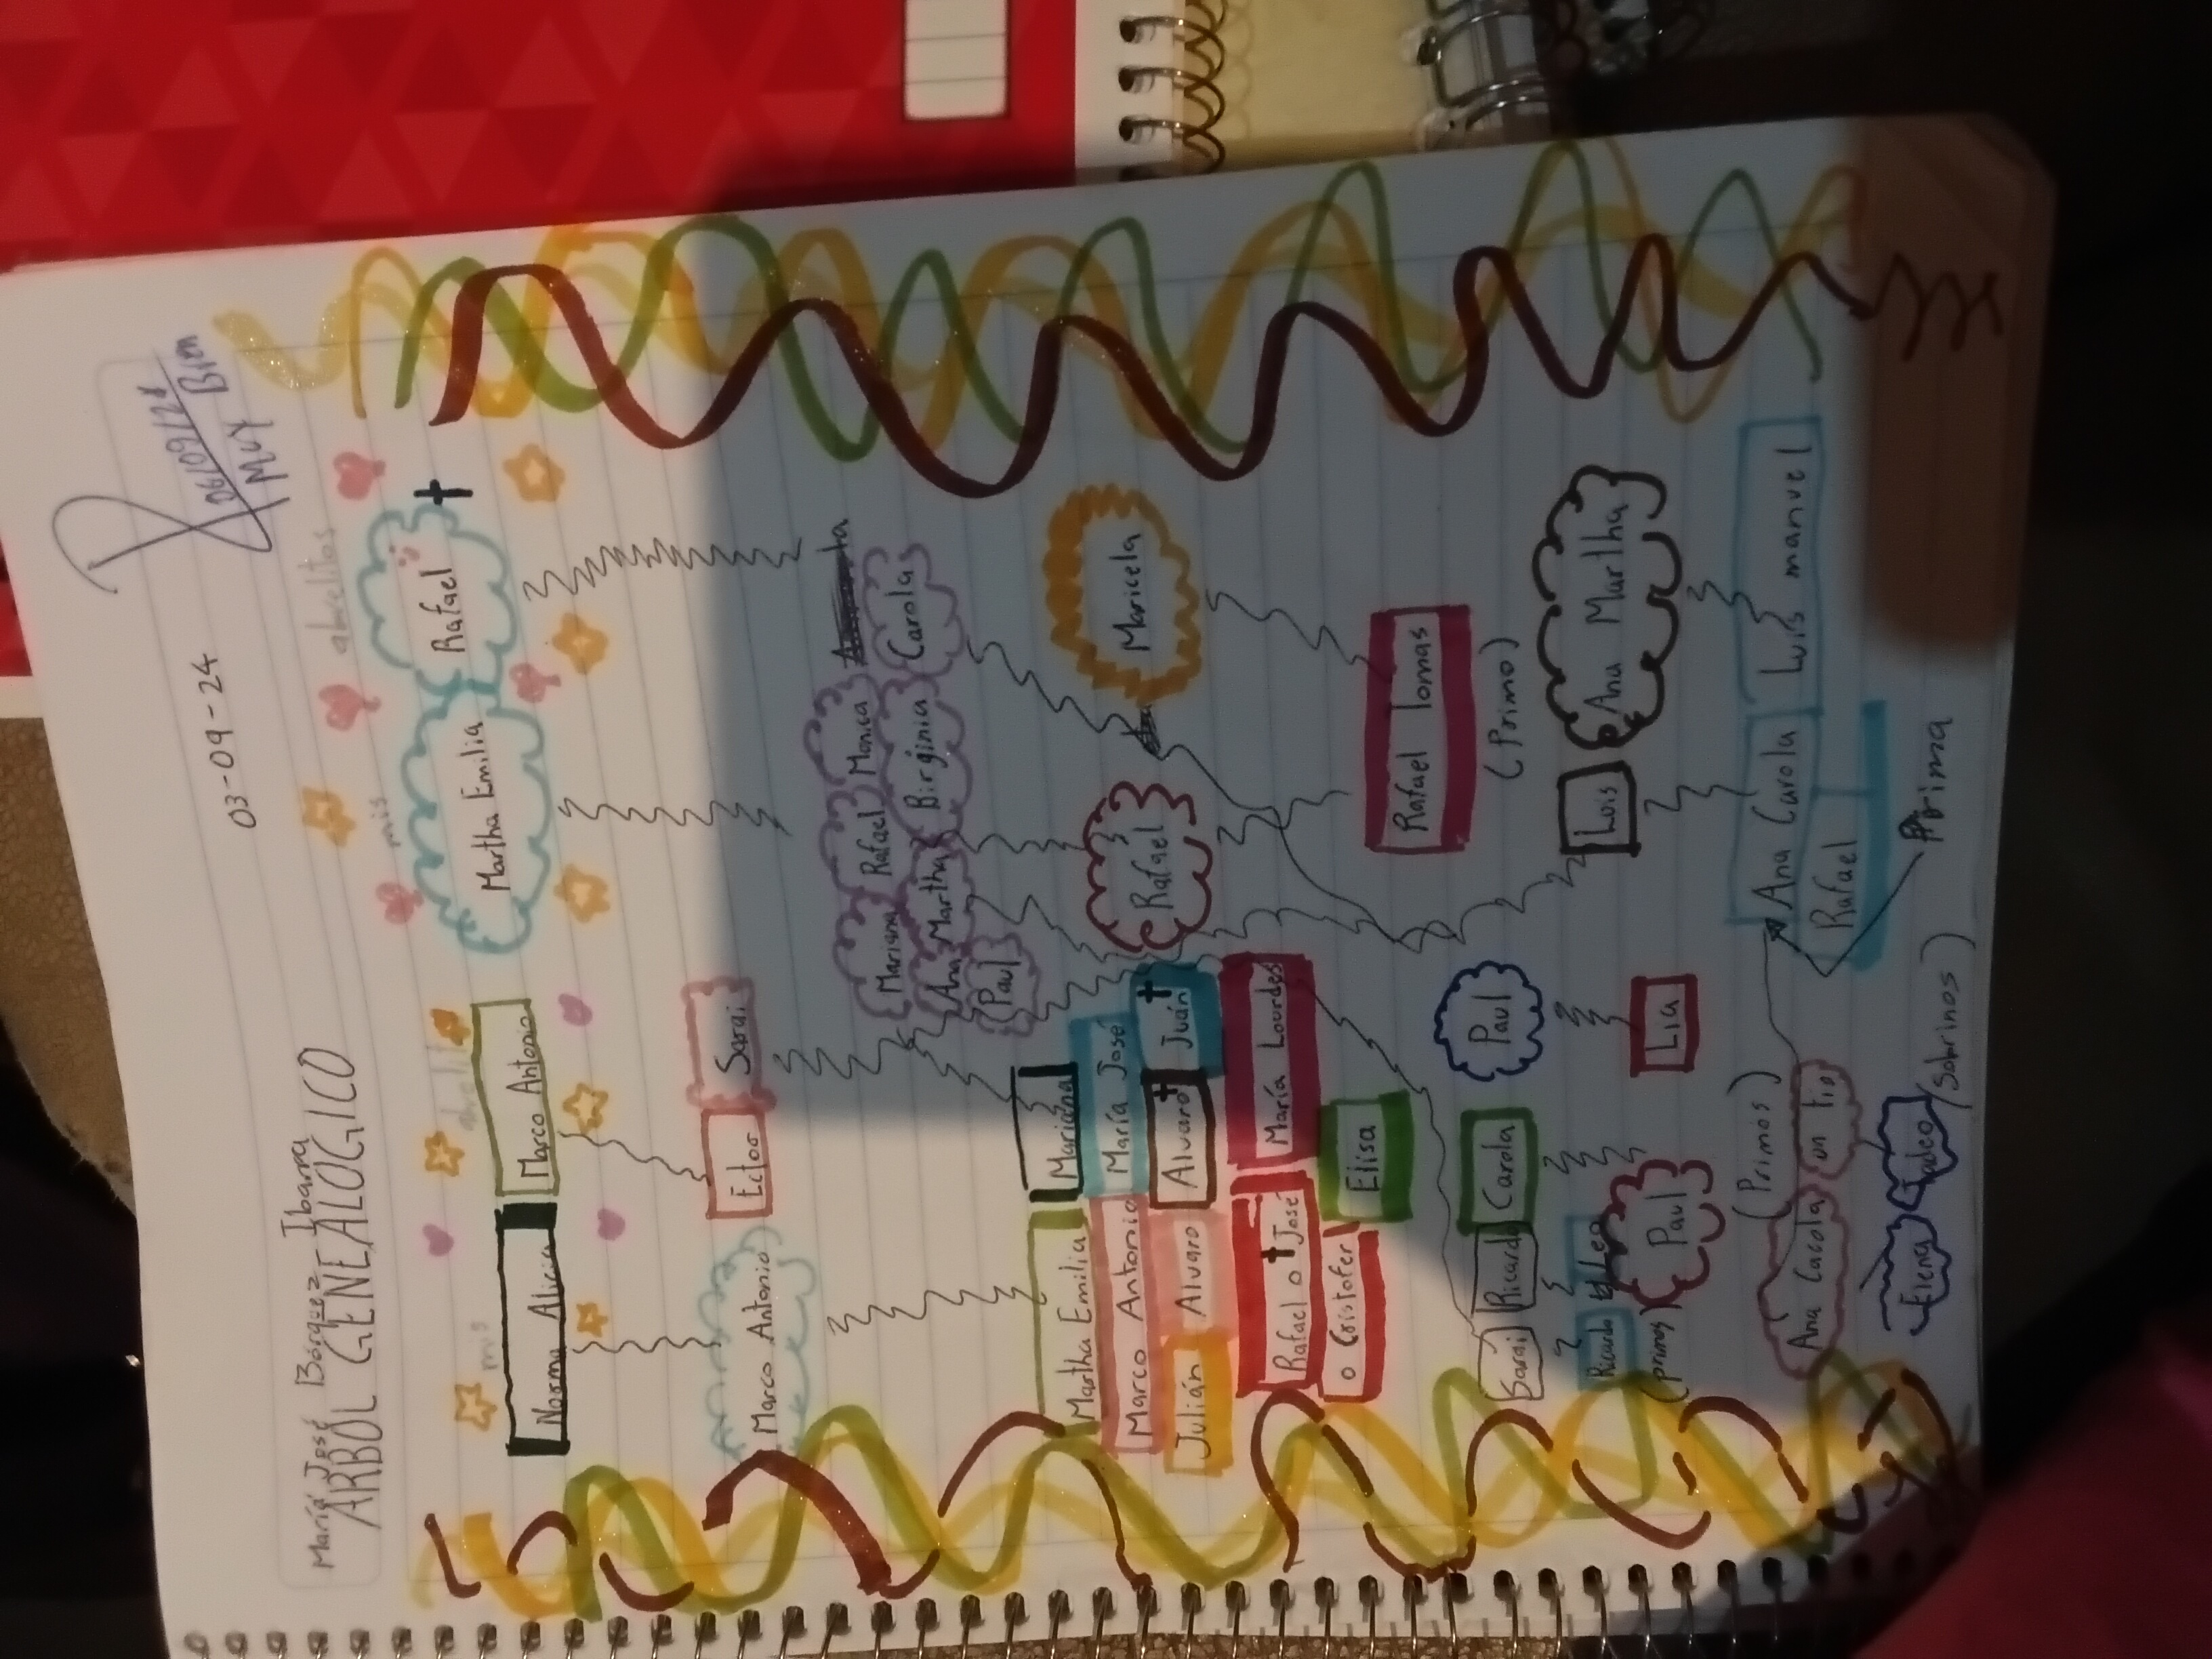 03-09-24
06/09/24
MUY Bien
María José Bórquez Ibarra
ARBOL GENEALOGICO
mis abuelitos
mis abuelitos
Norma Alicia Marco Antonio
Martha Emilia Rafael
Marco Antonio Ector Sarai
Mariana Rafael Monica
Ana Martha Birginia Carola
Paul
Martha Emilia Mariana
Marco Antonio María José
Julián Alvaro Alvaro Juán
Rafael o José María Lourdes
o Cristofer Elisa
Rafael Maricela
Rafael Tomas
(Primo)
Sarai Ricardo Carola Paul
Luis Ana Martha
Ricardo Leo Paul Lia
(primos)
(Primos)
Ana Carola Luis manuel
Rafael
Prima
Ana Carola un tio
Elena
(Sobrinos)